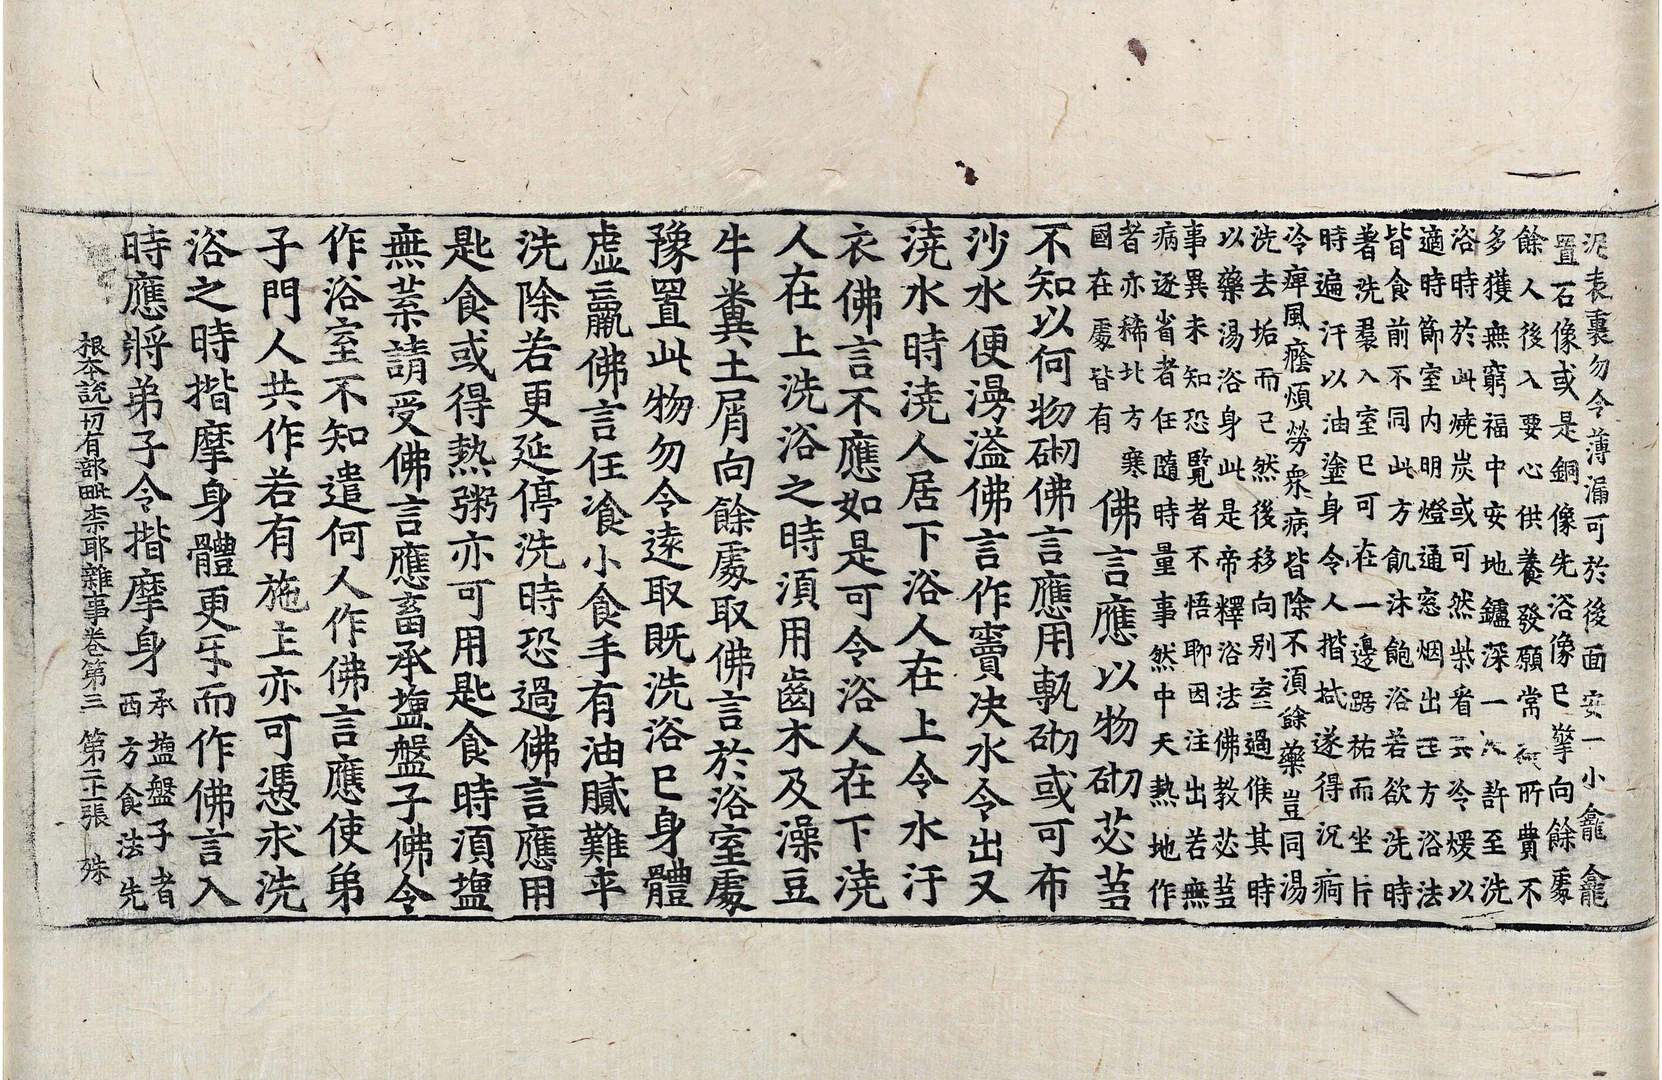 泥表裏勿令薄漏可於後面安一小龕龕
置石像或是銅像先浴像已擎向餘處
餘人後入要心供養發願常所費不
多獲無窮福中安地鑪深一許至洗
浴時於此燒炭或可然柴看冷煖以
適時節室内明燈通窓烟出西方浴法
皆食前不同此方飢沐飽浴若欲洗時
著洗裙入室已可在一邊踞枯而坐片
時遍汗以油塗身令人揩拭遂得沉痾
冷痺風癊煩勞衆病皆除不湏餘藥豈同湯
洗去垢而已然後移向别室過候其時
以藥湯浴身此是帝釋浴法佛教苾芻
事異未知恐覧者不悟聊因注出若無
病逐省者任隨時量事然中天熱地作
者亦稀北方寒
國在處皆有
佛言應以物砌苾芻
不知以何物砌佛言應用甎砌或可布
沙水便漫溢佛言作竇決水令出又
澆水時澆人居下浴人在上令水汙
衣佛言不應如是可令浴人在下澆
人在上洗浴之時湏用齒木及澡豆
牛糞土屑向餘處取佛言於浴室處
豫置此物勿令遠取既洗浴已身體
虚羸佛言任飡小食手有油膩難平
洗除若更延停洗時恐過佛言應用
匙食或得熱粥亦可用匙食時湏塩
無葉請受佛言應畜承塩盤子佛令
作浴室不知遣何人作佛言應使弟
子門人共作若有施主亦可憑求洗
浴之時揩摩身體更互而作佛言入
時應將弟子令揩摩身
承塩盤子者
西方食法先
根本說一切有部毗柰耶雜事卷第三 第二十張 殊